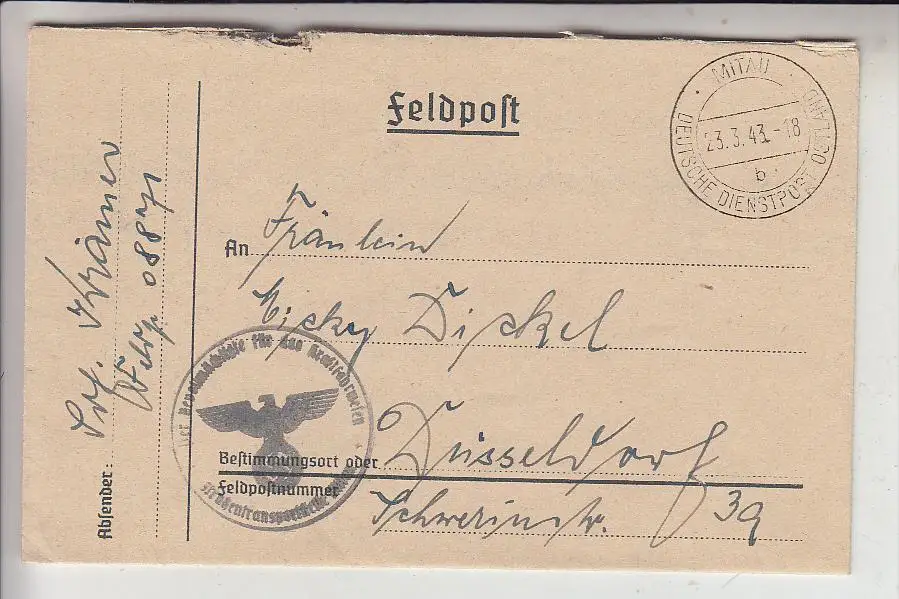 Feldpost
MITAU
DEUTSCHE DIENSTPOST OSTLAND
23.3.43.-18
b
An Fräulein
Micky Dickel
Bestimmungsort oder Düsseldorf
Feldpostnummer Schwerinstr. 39
für das Kraftfahrwesen
Absender: Krämer
08871